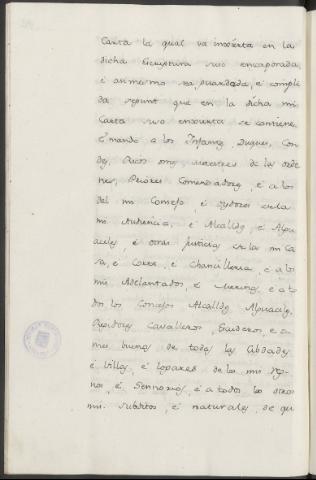 Carta la qual va inxerta en la
dicha Escriptura suso encorporada
é asimesmo sea guardada, é compli
da segunt que en la dicha mi
Carta suso enxerta se contiene
É mando a los Infantes, Duques, Con
des, Ricos omes, maestres de las orde
nes, Priores Comendadores, é a los
del mi Consejo é oydores de la
mi Audiencia, é Alcalldes, é Algua
ciles, é otras justicias de la mi Ca
sa, é Corte, é Chancilleria, é a los
mis Adelantados, é Merinos, é a to
dos los Concejos Alcalldes Alguaciles,
Regidores Cavalleros, Escuderos, é o
mes buenos de todas las Cibdades
é Villas, é logares de los mis Reg
nos, é Sennorios, é a todos los otros
mis subditos, é naturales, de qual